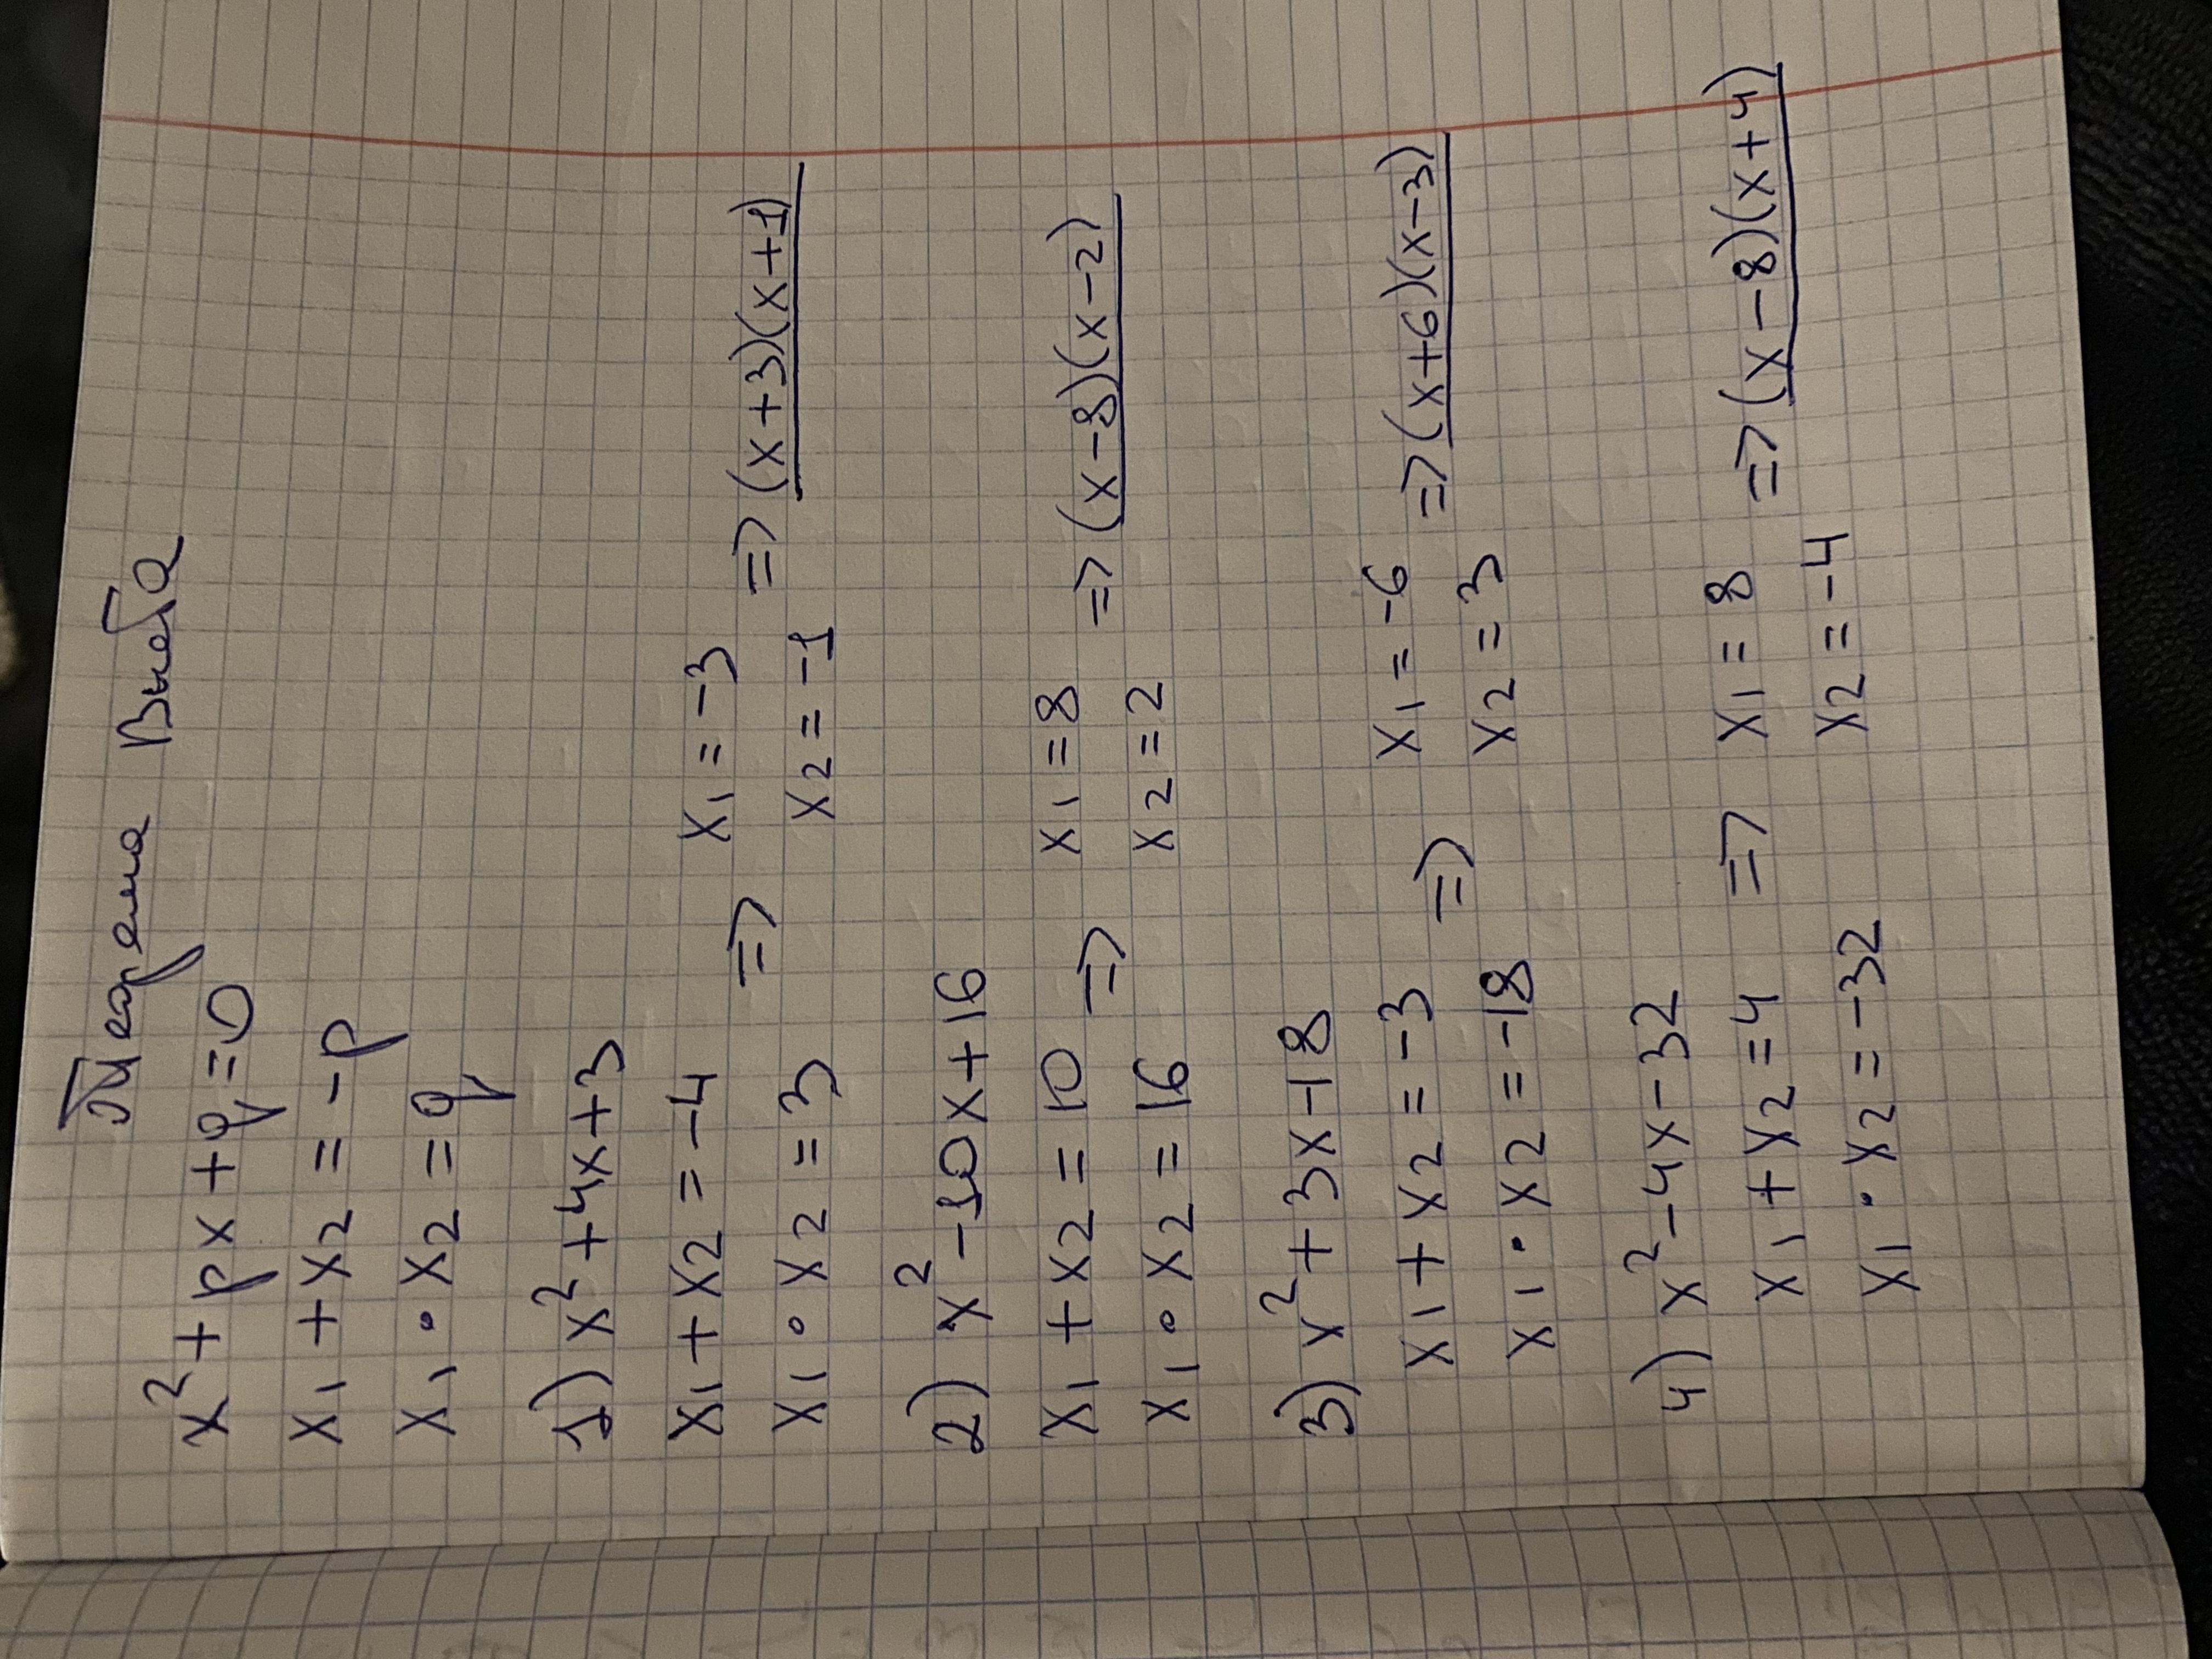 Теорема Виета
x²+px+q=0
x₁+x₂=-p
x₁•x₂=q
1) x²+4x+3
x₁+x₂=-4 x₁=-3
=> => (x+3)(x+1)
x₁•x₂=3 x₂=-1
2) x²-10x+16
x₁+x₂=10 => x₁=8 => (x-8)(x-2)
x₁•x₂=16 x₂=2
3) x²+3x-18
x₁+x₂=-3 => x₁=-6 => (x+6)(x-3)
x₁•x₂=-18 x₂=3
4) x²-4x-32
x₁+x₂=4 => x₁=8 => (x-8)(x+4)
x₁•x₂=-32 x₂=-4